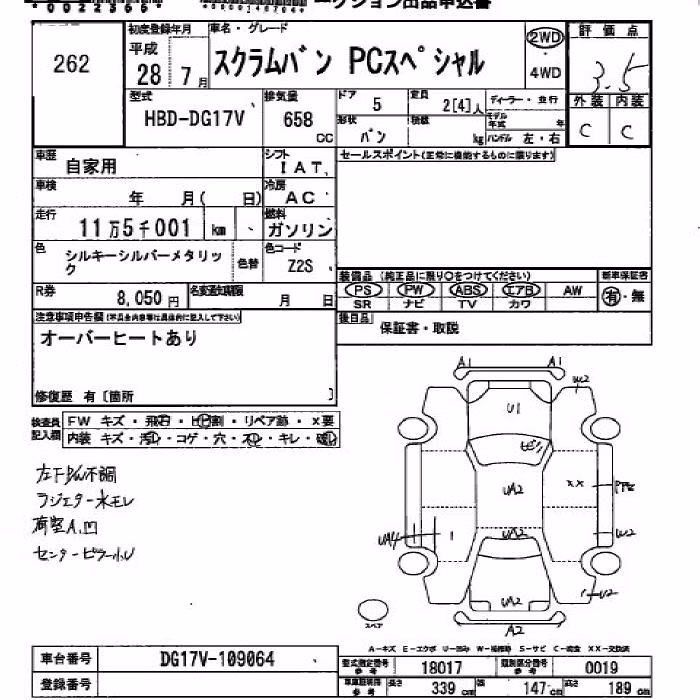 262
初度登録年月
平成
28 7月
車名・グレード
スクラムバン PCスペシャル
2WD
4WD
評価点
3.5
外装 内装
C C
型式
HBD-DG17V
排気量
658
CC
ドア
5
定員
2[4]人
ディーラー・並行
形状
バン
積載
kg
モデル年式
年
ハンドル 左・右
車歴
自家用
シフト
IAT
セールスポイント(正常に機能するものに限ります)
車検
年 月( 日)
冷房
AC
走行
11万5千001 km
燃料
ガソリン
色
シルキーシルバーメタリック
色替
色コード
Z2S
R券
8,050円
名変通知期限
月 日
装備品 (純正品に限り○をつけてください)
PS PW ABS エアB AW
SR ナビ TV カワ
新車保証書
有・無
後日品
保証書・取説
注意事項申告欄(不具合内容等は具体的に記入して下さい)
オーバーヒートあり
修復歴 有〔箇所 〕
検査員記入欄
FW キズ・飛石・ヒビ割・リペア跡・X要
内装 キズ・汚レ・コゲ・穴・スレ・キレ・破レ
左下P/W不調
ラジエター水モレ
荷室A.凹
センターピラー小U
A1 A1
W2
U1
ビリ
UA2
XX
UA4
1
UA2
W2
UA2
U2
A2
スペア
A-キズ E-エクボ U-凹み W-補修跡 S-サビ C-腐食 XX-交換済
車台番号
DG17V-109064
登録番号
型式指定番号
参考
18017
類別区分番号
参考
0019
車庫証明用
参考
長さ
339 cm
幅
147 cm
高さ
189 cm